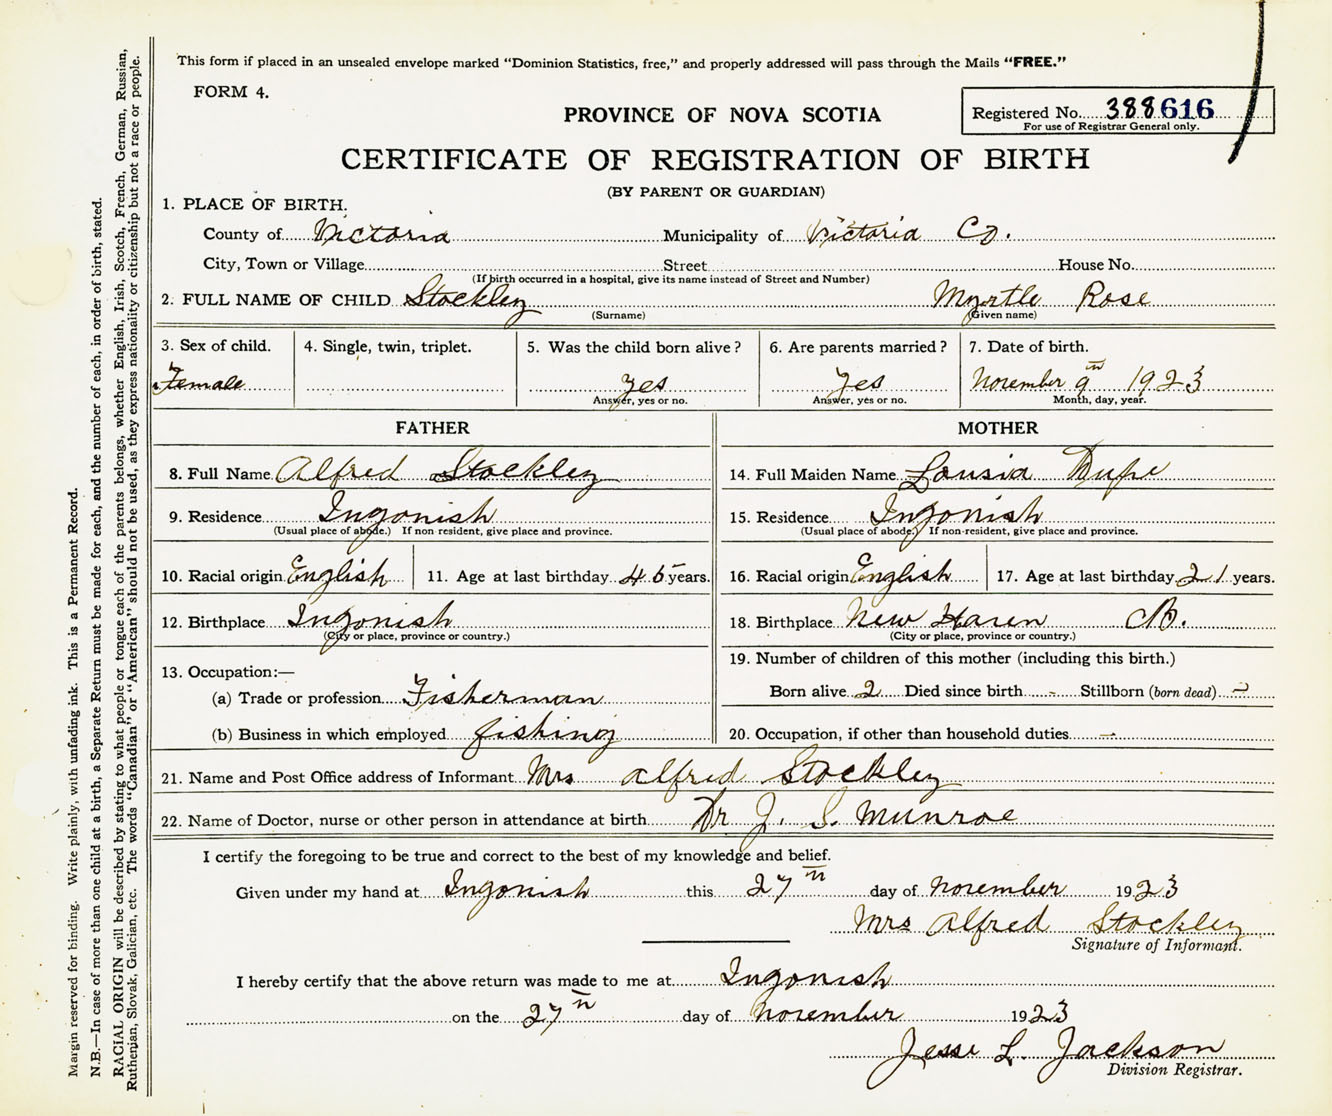 This form if placed in an unsealed envelope marked “Dominion Statistics, free,” and properly addressed will pass through the Mails “FREE.”
FORM 4.
PROVINCE OF NOVA SCOTIA
Registered No. 388616
For use of Registrar General only.
CERTIFICATE OF REGISTRATION OF BIRTH
(BY PARENT OR GUARDIAN)
1. PLACE OF BIRTH.
County of Victoria Municipality of Victoria Co.
City, Town or Village Street House No.
(If birth occurred in a hospital, give its name instead of Street and Number)
2. FULL NAME OF CHILD Stockley Myrtle Rose
(Surname) (Given name)
3. Sex of child. 4. Single, twin, triplet. 5. Was the child born alive? 6. Are parents married? 7. Date of birth.
Female Yes Yes November 9th 1923
Answer, yes or no. Answer, yes or no. Month, day, year.
FATHER
8. Full Name Alfred Stockley
9. Residence Ingonish
(Usual place of abode.) If non-resident, give place and province.
10. Racial origin English 11. Age at last birthday 45 years.
12. Birthplace Ingonish
(City or place, province or country.)
13. Occupation:—
(a) Trade or profession Fisherman
(b) Business in which employed fishing
MOTHER
14. Full Maiden Name Lousia Dupe
15. Residence Ingonish
(Usual place of abode.) If non-resident, give place and province.
16. Racial origin English 17. Age at last birthday 21 years.
18. Birthplace New Haven
(City or place, province or country.)
19. Number of children of this mother (including this birth.)
Born alive 2 Died since birth - Stillborn (born dead) -
20. Occupation, if other than household duties -
21. Name and Post Office address of Informant Mrs Alfred Stockley
22. Name of Doctor, nurse or other person in attendance at birth Dr J. S. Munroe
I certify the foregoing to be true and correct to the best of my knowledge and belief.
Given under my hand at Ingonish this 27th day of November 1923
Mrs Alfred Stockley
Signature of Informant.
I hereby certify that the above return was made to me at Ingonish
on the 27th day of November 1923
Jesse L. Jackson
Division Registrar.
Margin reserved for binding. Write plainly, with unfading ink. This is a Permanent Record.
N.B.—In case of more than one child at a birth, a Separate Return must be made for each, and the number of each, in order of birth, stated.
RACIAL ORIGIN will be described by stating to what people or tongue each of the parents belongs, whether English, Irish, Scotch, French, German, Russian,
Ruthenian, Slovak, Galician, etc. The words “Canadian” or “American” should not be used, as they express nationality or citizenship but not a race or people.